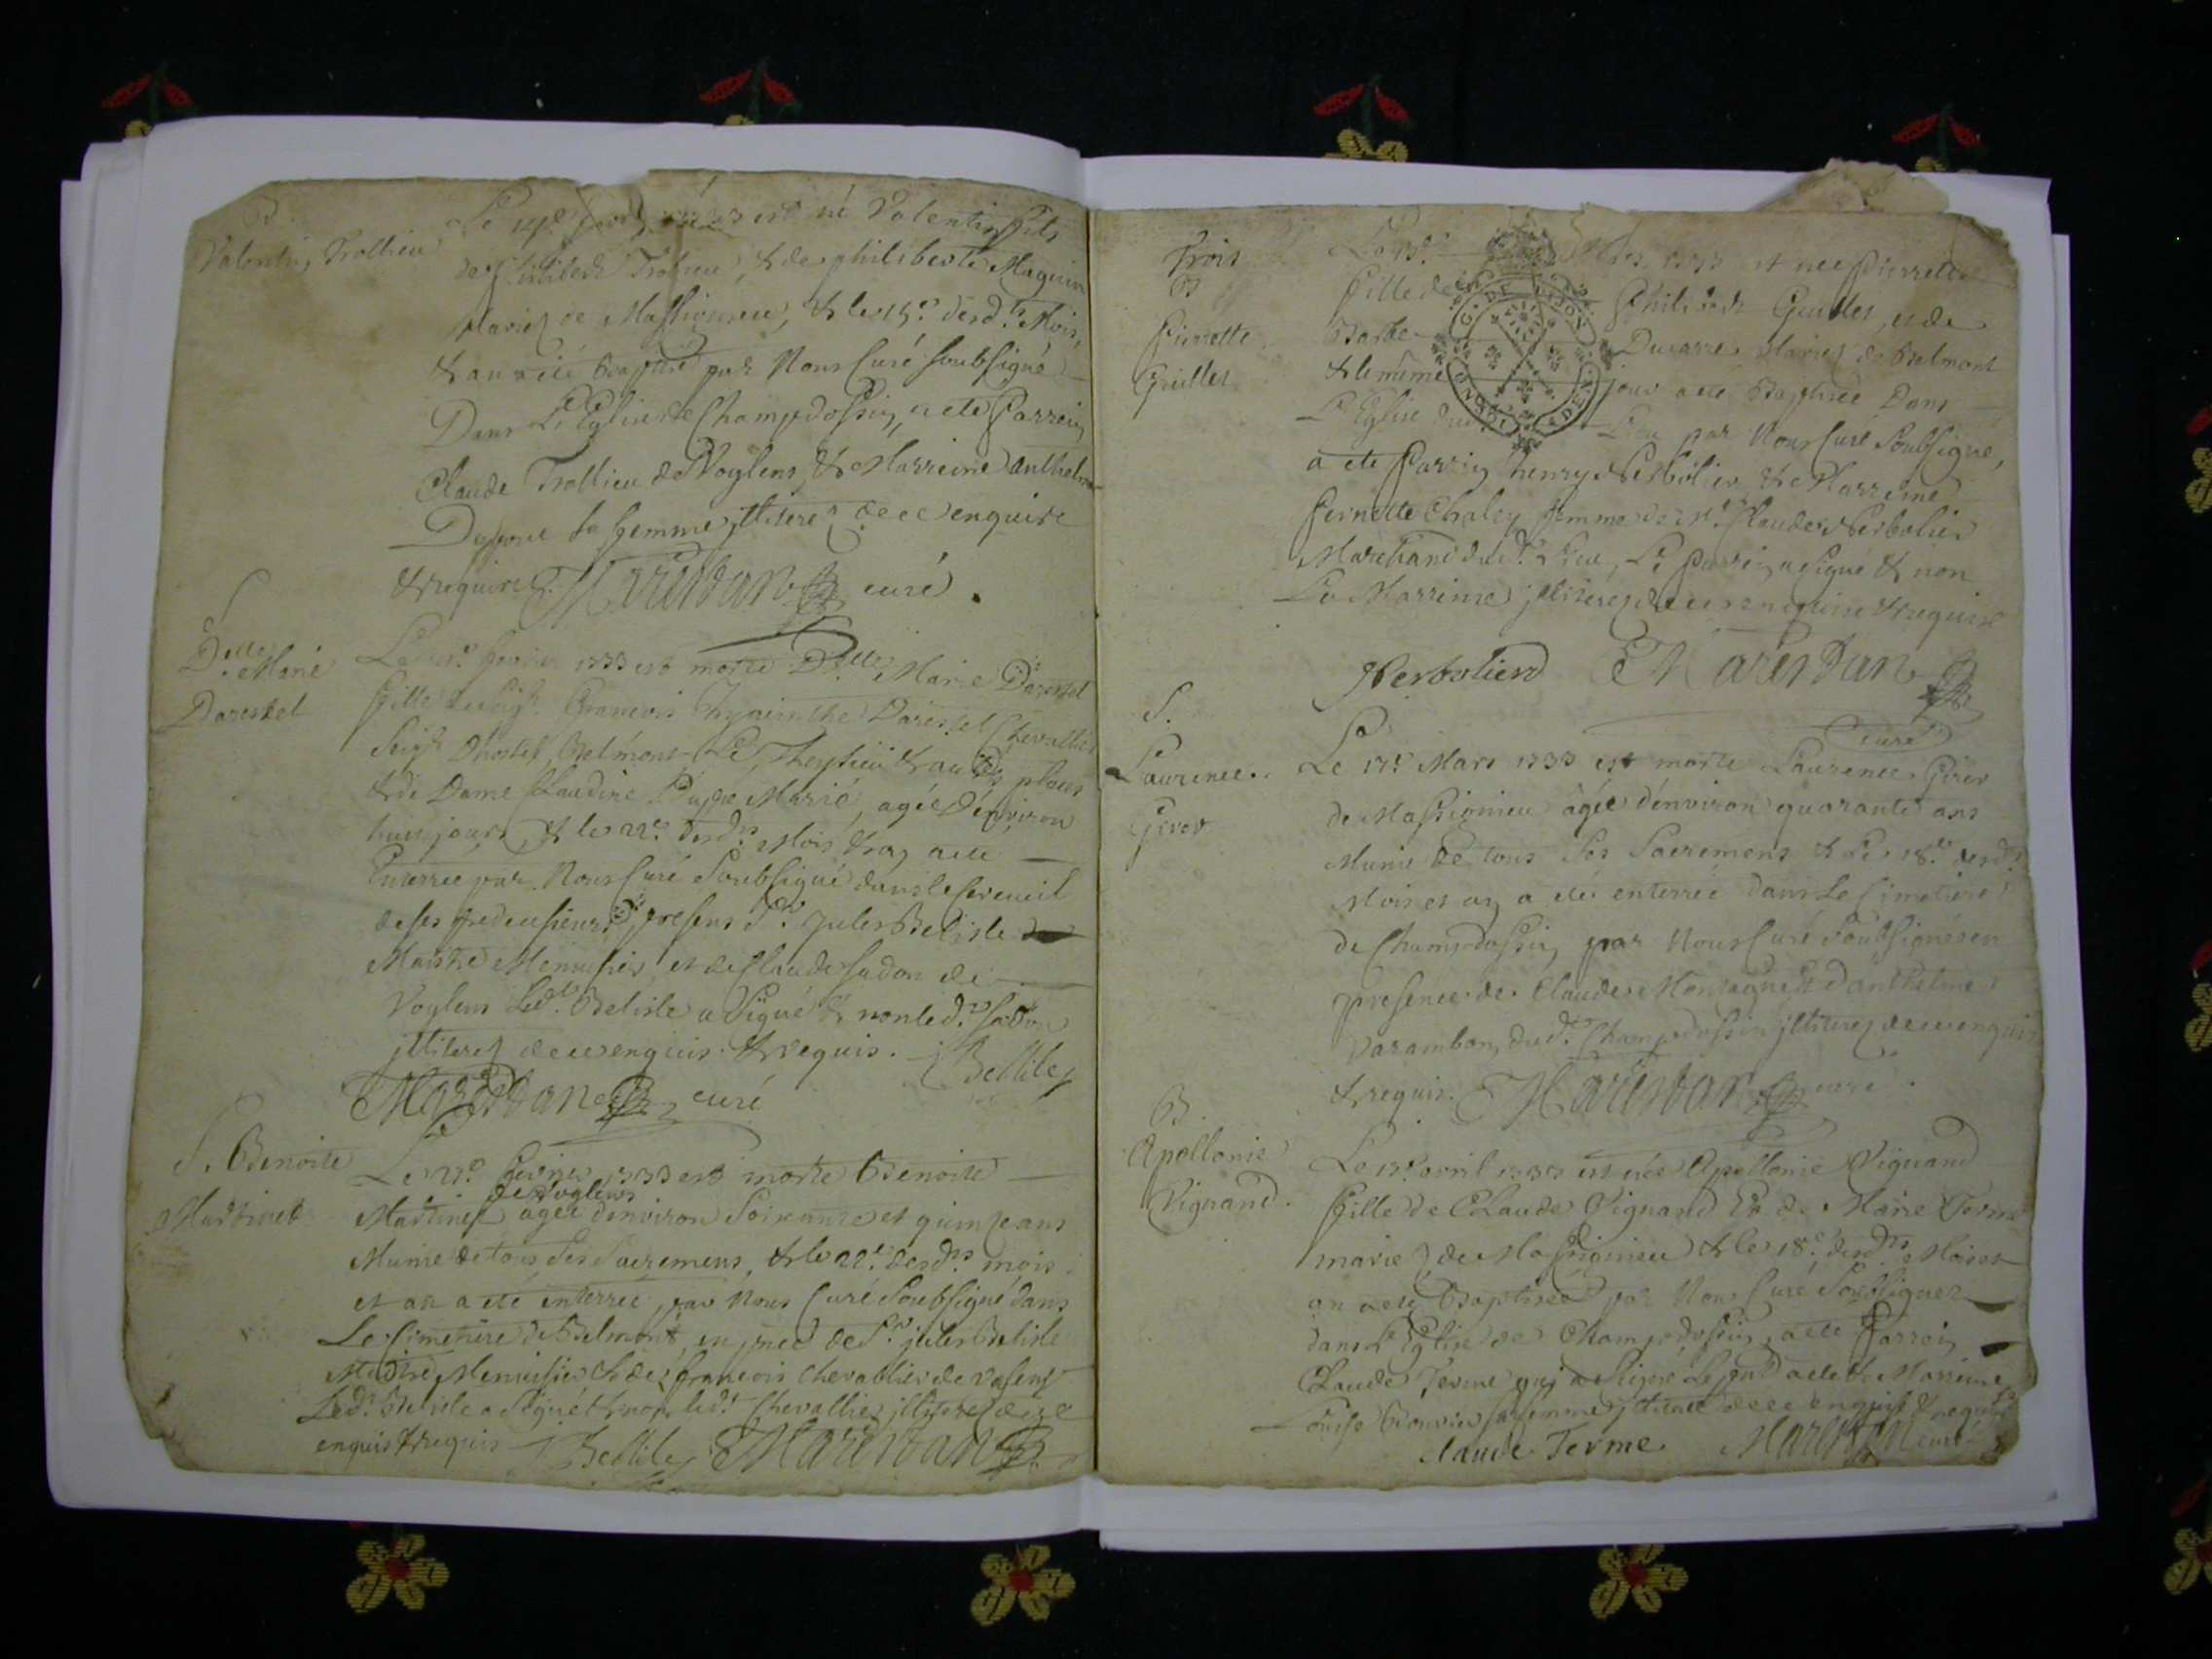 B.
Valentin Trollieu
Le 14e 1733 est né Valentin fils
de Philibert Trollieu, & de philiberte Maguin
Mariez de Massignieu, & le 15e desd.ts Mois,
& an a été baptisé par Nous Curé soubsigné
Dans L'Eglise de Champdossin, a ete Parrein
Claude Trollieu de Voglens, & Marreine anthelme
sa femme jlliterez de ce enquire
& require. Marestan curé.
S
Delle Marie
Darestel
Le fevrier 1733 est morte Delle Marie Darestel
fille de Seigr. François Hyacinthe Darestel Chevallier
Seigr. Dhostel, Belmont, Le & autres places
& de Dame Claudine Marié, agée d'environ
huit jours, & le 22e desd.ts Mois & an a ete
Enterrée par Nous Curé soubsigné dans le Cercueil
de ses predecesseurs, presens Sr. Jules Belisle
Maistre Menuisier, et de Claude Sadon de
Voglens Led.t Belisle a Signé & non led.t Sadon
jlliterez de ce enquis & requis. JBellile
Marestan curé
S. Benoite
Martinet
Le 21e fevrier 1733 est morte Benoite
de Voglens
Martinet agée d'environ Soixante et quinze ans
Munie de tous ses Sacremens, & le 22e desd.ts mois
et an a eté enterrée, par Nous Curé Soubsigné dans
Le Cimetiere de Belmont, en pnce de Sr. jules Belisle
Maitre Menuisier & de françois Chevallier de
Led.t Belisle a Signé & non led.t Chevallier jlliterez de ce
enquis & requis JBellile Marestan
Trois
B
Pierrette
Guillet
Le 13e Mars 1733 est née Pierrette
fille de Philibert Guillet, et de
Barbe Ducarre Mariez de Belmont
& le même jour a eté Baptisée Dans
L'Eglise dud. Lieu par Nous Curé Soubsigné,
a ete Parrin henry Nerbolier & Marreine
pernette Chaley femme de Sr. Claude Nerbolier
Marchand dud.t Lieu, Le Parrin a signé & non
La Marreine jlliterez de ce enquise & requise
Nerbolier Marestan
curé
GEN. DE DIJON
S.
Laurence
Girer
Le 17e Mars 1733 est morte Laurence Girer
de Massignieu agée d'environ quarante ans
Munie de tous Ses Sacremens & Le 18e desd.ts
Mois et an a eté enterrée dans Le Cimetiere
de Champdossin par Nous Curé Soubsigné en
presence de Claude Montagnet d'anthelme
Varambon, dud.t Champdossin jlliterez de ce enquis
& requis. Marestan curé.
B.
Apollonie
Vignand.
Le 17e avril 1733 est née Apollonie Vignand
fille de Claude Vignand & de Marie Terme
mariez de Massignieu & le 18e desd.ts Mois et
an a eté Baptisée par Nous Curé Soubsigner
dans L'Eglise de Champdossin, a ete Parrein
Claude Terme qui a Signé Le pnt acte & Marreine
Louise Bouvier sa femme jlliterée de ce enquise & requise
Claude Terme Marestan curé